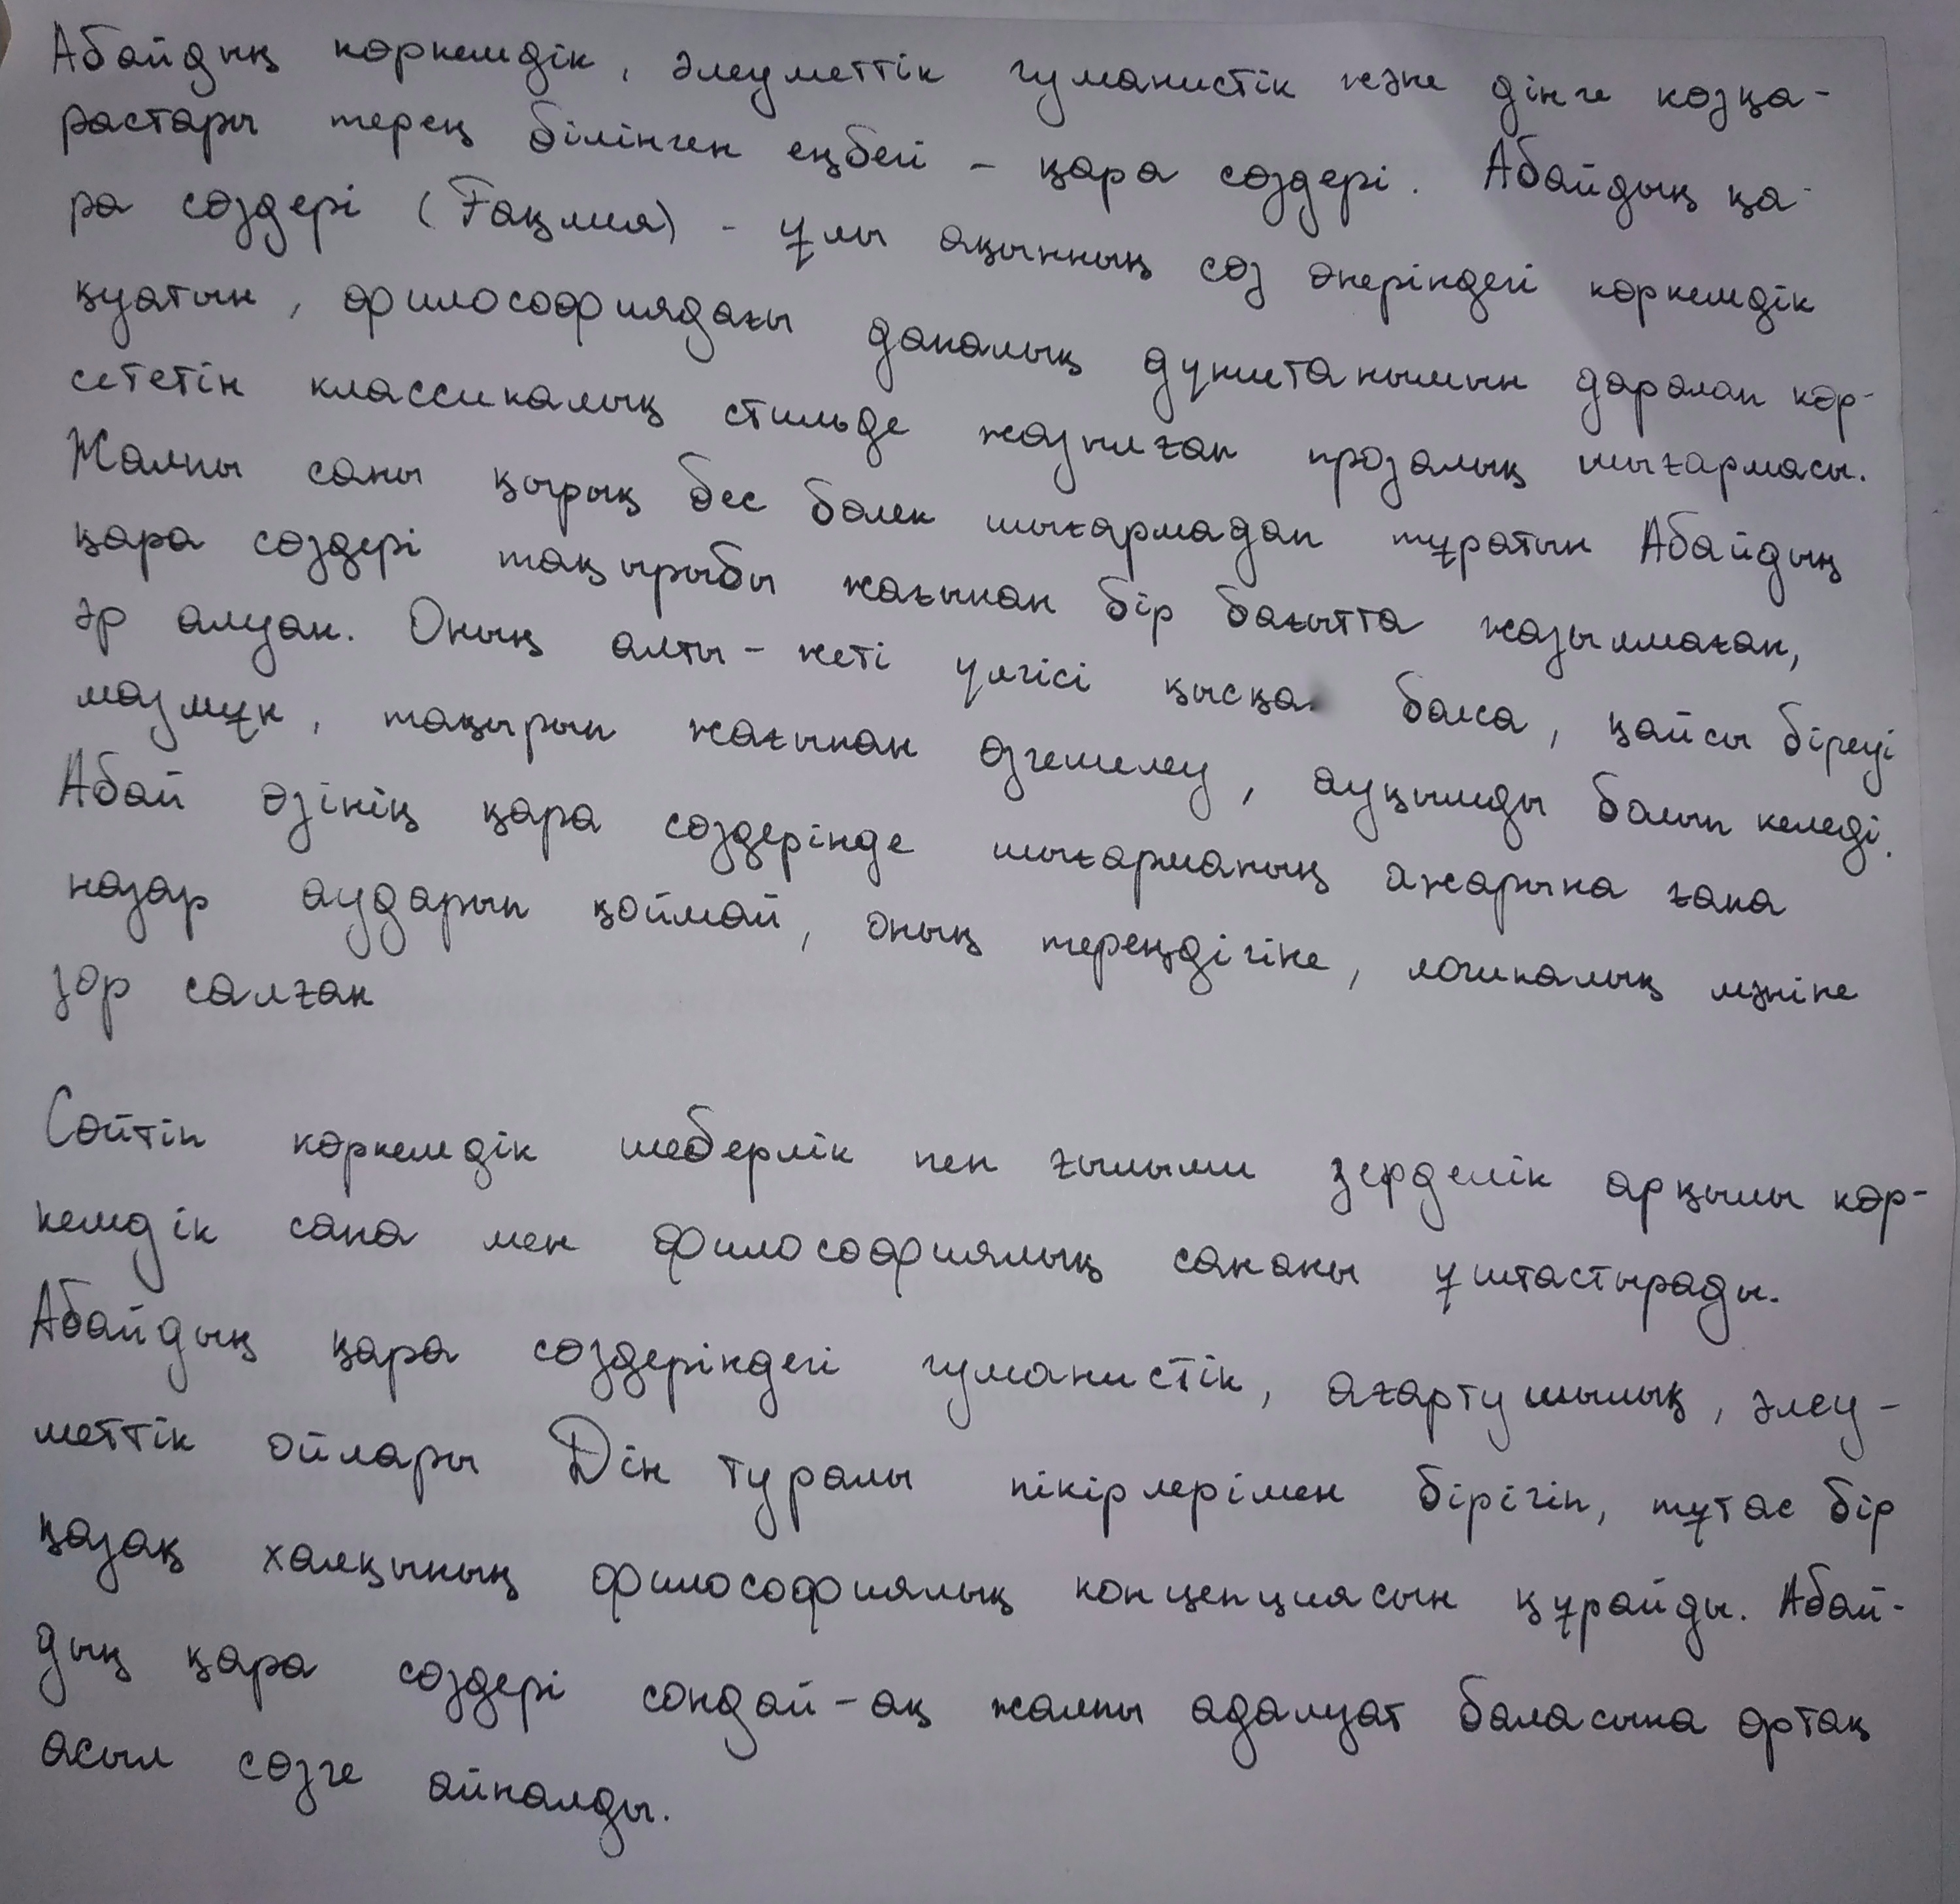 Абайдың көркемдік, әлеуметтік гуманистік және дінге козқа-
растары терең білінген еңбегі - қара сөздері. Абайдың қа-
ра сөздері (Ғақлия) - ұлы ақынның сөз өнеріндегі көркемдік
қуатын, философиядағы даналық дүниетанымын даралап көр-
сететін классикалық стильде жазылған прозалық шығармасы.
Жалпы саны қырық бес бөлек шығармадан тұратын Абайдың
қара сөздері тақырыбы жағынан бір бағытта жазылмаған,
әр алуан. Оның алты-жеті үлгісі қысқа болса, қайсы біреуі
мазмұн, тақырып жағынан өзгешелеу, ауқымды болып келеді.
Абай өзінің қара сөздерінде шығарманың ажарына ғана
назар аударып қоймай, оның тереңдігіне, логикалық мәніне
зор салған
Сөйтіп көркемдік шеберлік пен ғылыми зерделік арқылы көр-
кемдік сана мен философиялық сананы ұштастырады.
Абайдың қара сөздеріндегі гуманистік, ағартушылық, әлеу-
меттік ойлары Дін туралы пікірлерімен бірігіп, тұтас бір
қазақ халқының философиялық концепциясын құрайды. Абай-
дың қара сөздері сондай-ақ жалпы адамзат баласына ортақ
асыл сөзге айналды.